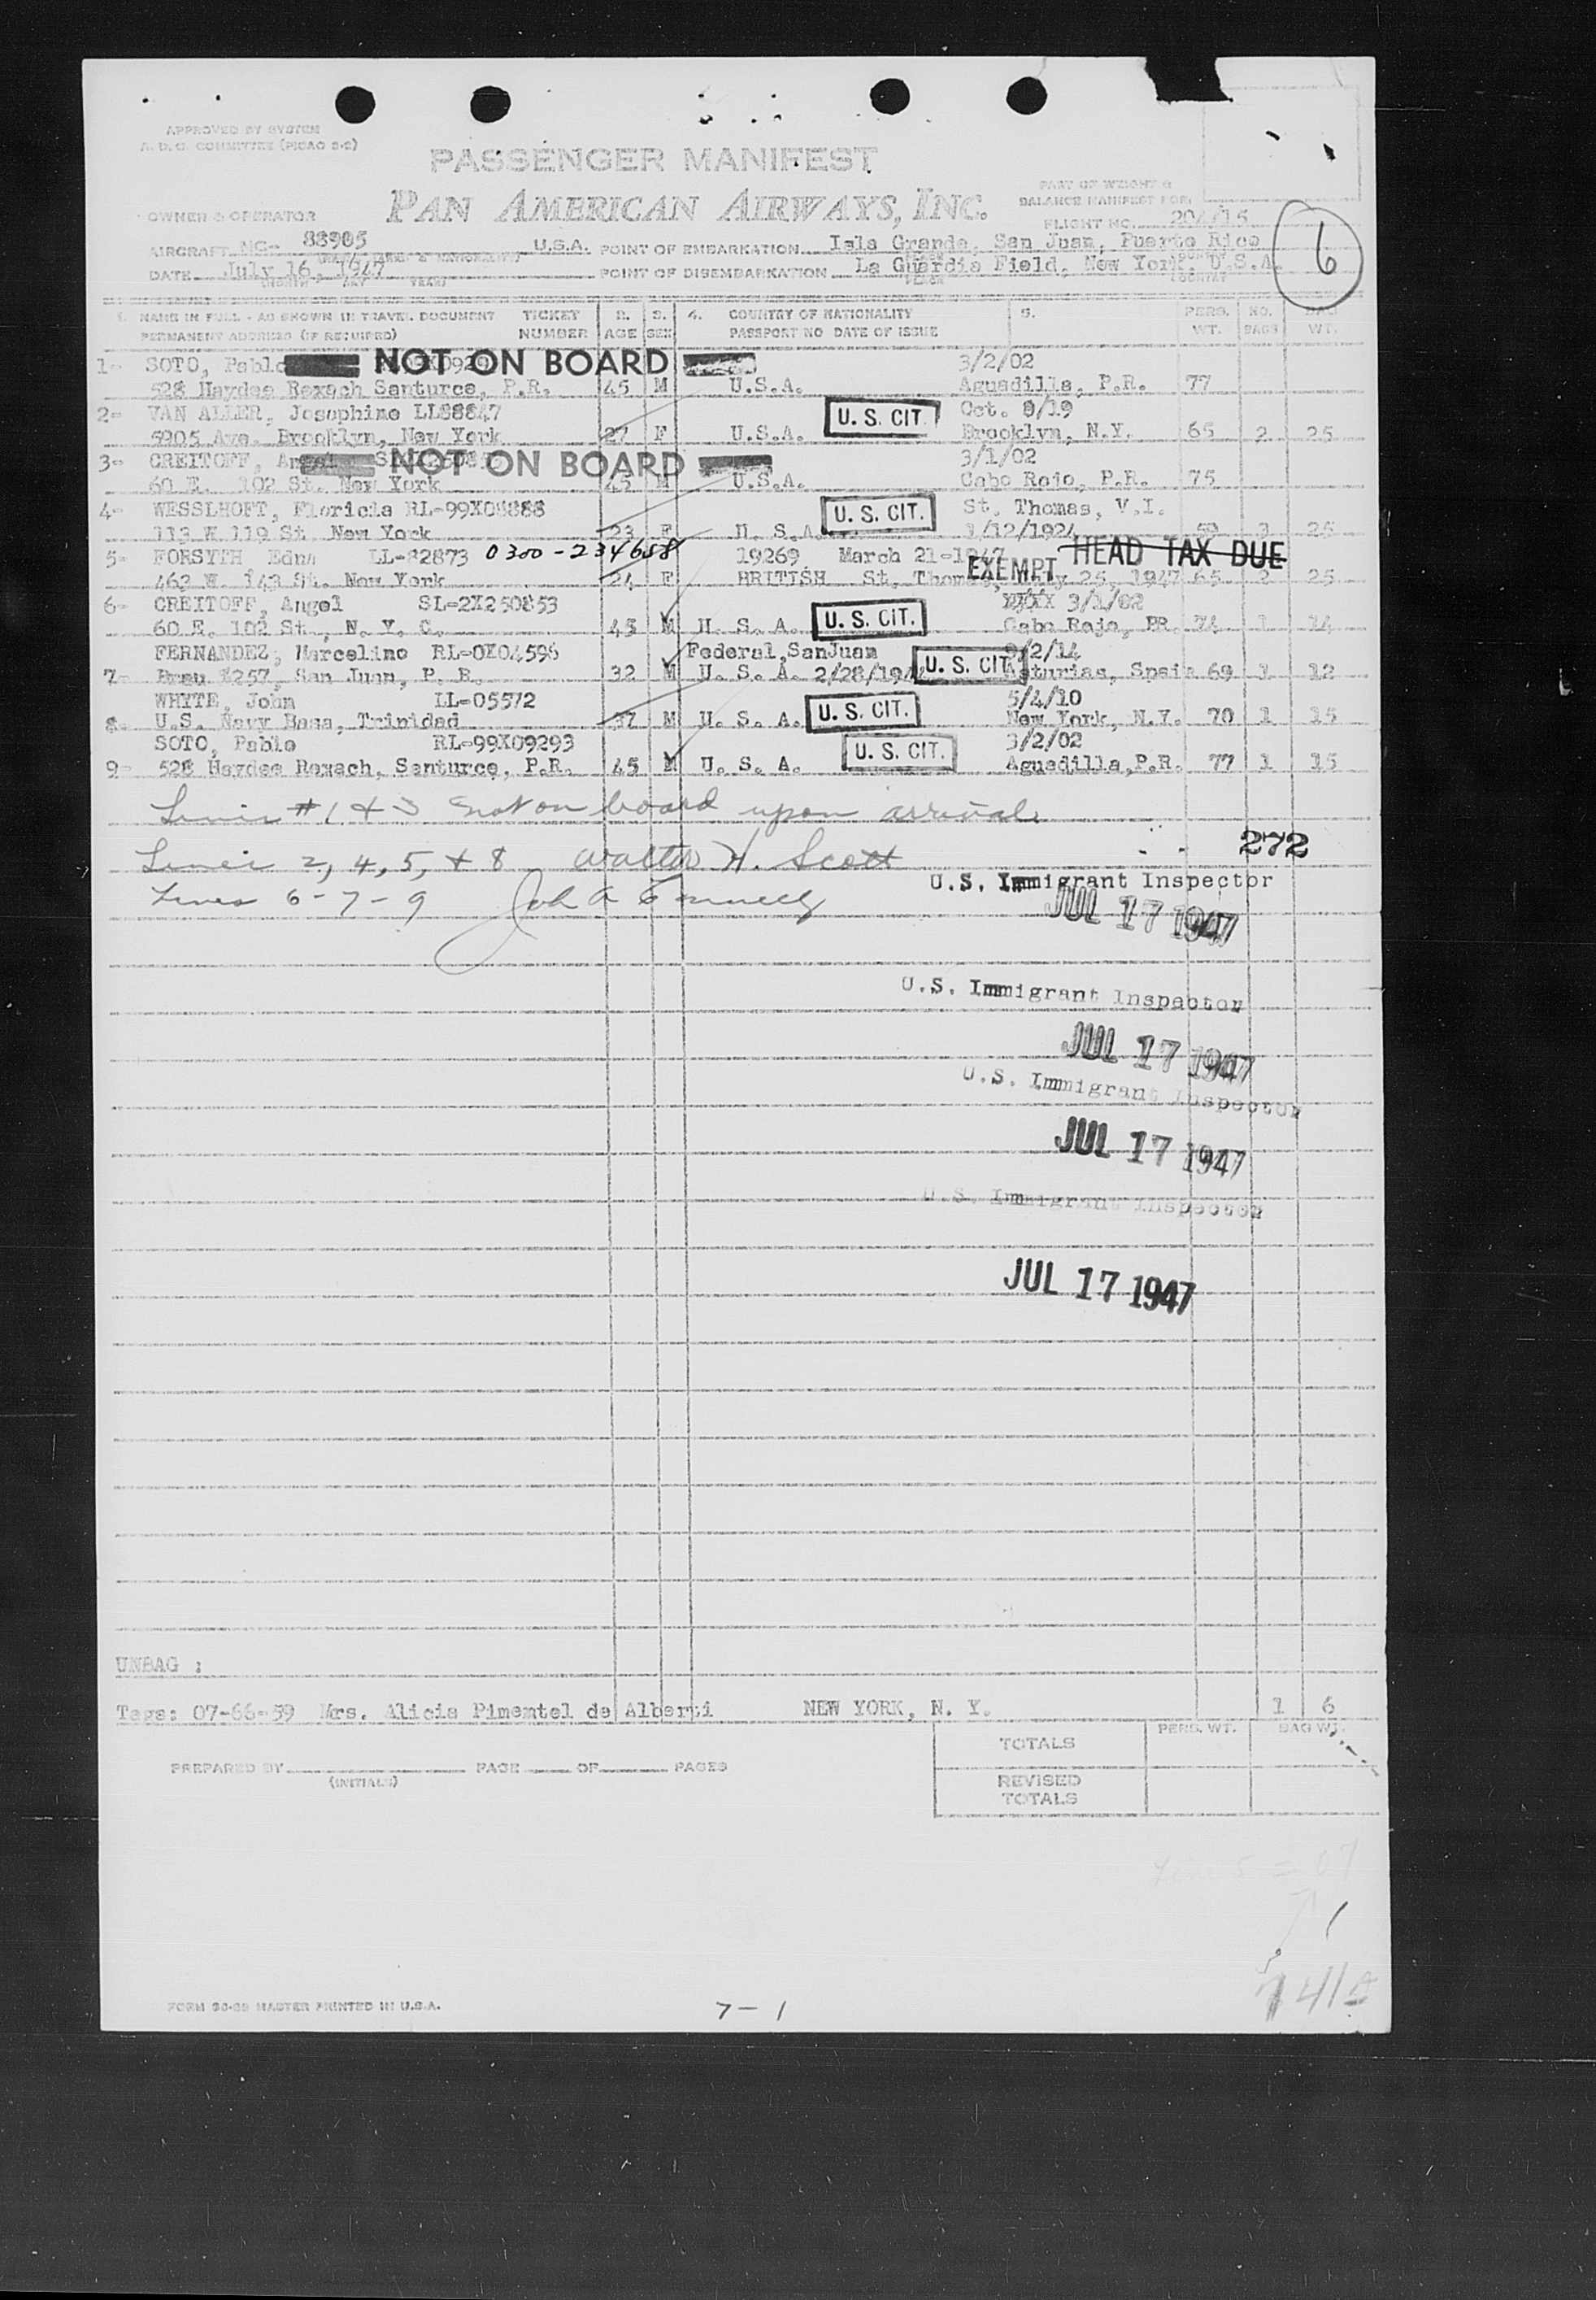 APPROVED BY SYSTEM
A.D.C. COMMITTEE (PICAO 2-2)
PASSENGER MANIFEST
PAN AMERICAN AIRWAYS, INC.
PART OF WEIGHT &
BALANCE MANIFEST FOR
OWNER & OPERATOR
FLIGHT NO. 204/15
AIRCRAFT NC- 88905 U.S.A. POINT OF EMBARKATION Isla Grande, San Juan, Puerto Rico
DATE July 16, 1947 POINT OF DISEMBARKATION La Guardia Field, New York, U.S.A.
6
1. NAME IN FULL - AS SHOWN IN TRAVEL DOCUMENT TICKET 2. 3. 4. COUNTRY OF NATIONALITY 5. PERS. NO. BAG
PERMANENT ADDRESS (IF REQUIRED) NUMBER AGE SEX PASSPORT NO DATE OF ISSUE WT. BAGS WT.
1- SOTO, Pablo NOT ON BOARD 3/2/02
528 Haydee Rexach Santurce, P.R. 45 M U.S.A. Aguadilla, P.R. 77
2- VAN ALLER, Josephine LL88847 U. S. CIT. Oct. 8/19
5905 Ave. Brooklyn, New York 27 F U.S.A. Brooklyn, N.Y. 65 2 25
3- CREITOFF, Angel NOT ON BOARD 3/1/02
60 E. 102 St. New York 45 M U.S.A. Cabo Rojo, P.R. 75
4- WESSLHOFT, Floricia RL-99X08888 U. S. CIT. St. Thomas, V.I.
113 W 119 St. New York 23 F U. S.A. 1/12/1924 59 3 25
5- FORSYTH, Edna LL-82873 0300-234688 19269 March 21-1947 EXEMPT HEAD TAX DUE
463 W. 143 St. New York 24 F BRITISH St. Thomas, July 25, 1947 65 2 25
6- CREITOFF, Angel SL-2X250853 XXXX 3/1/02
60 E. 102 St., N. Y. C. 45 M U. S. A. U. S. CIT. Cabo Rojo, PR. 74 1 14
FERNANDEZ, Marcelino RL-0X04596 Federal, SanJuan 2/14
7- Brau #257, San Juan, P. R. 32 M U. S. A. 2/28/194 U. S. CIT. Asturias, Spain 69 1 12
WHYTE, John LL-05572 5/4/10
8- U.S. Navy Base, Trinidad 37 M U. S. A. U. S. CIT. New York, N.Y. 70 1 15
SOTO, Pablo RL-99X09293 3/2/02
9- 528 Haydee Rexach, Santurce, P.R. 45 M U. S. A. U. S. CIT. Aguadilla, P.R. 77 1 15
Lines #1 & 3 not on board upon arrival.
272
Lines 2, 4, 5, & 8 Walter H. Scott
U.S. Immigrant Inspector
Lines 6-7-9 John A
JUL 17 1947
U.S. Immigrant Inspector
JUL 17 1947
U.S. Immigrant Inspector
JUL 17 1947
U.S. Immigrant Inspector
JUL 17 1947
UNBAG :
Tags: 07-66-59 Mrs. Alicia Pimentel de Alberti NEW YORK, N. Y. 1 6
PERS. WT. BAG WT.
TOTALS
PREPARED BY (INITIALS) PAGE OF PAGES
REVISED
TOTALS
FORM 90-89 MASTER PRINTED IN U.S.A.
7-1